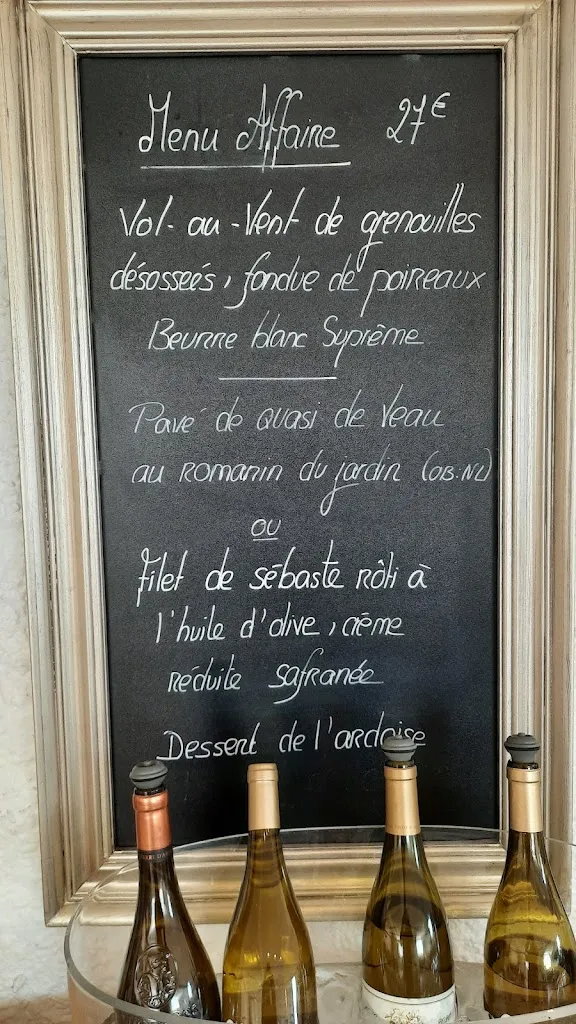 Menu Affaire 27€
Vol-au-Vent de grenouilles
désosseés, fondue de poireaux
Beurre blanc Suprême
Pavé de quasi de Veau
au romarin du jardin (OB.NL)
ou
Filet de sébaste rôti à
l'huile d'olive, crème
réduite safranée
Dessert de l'ardoise